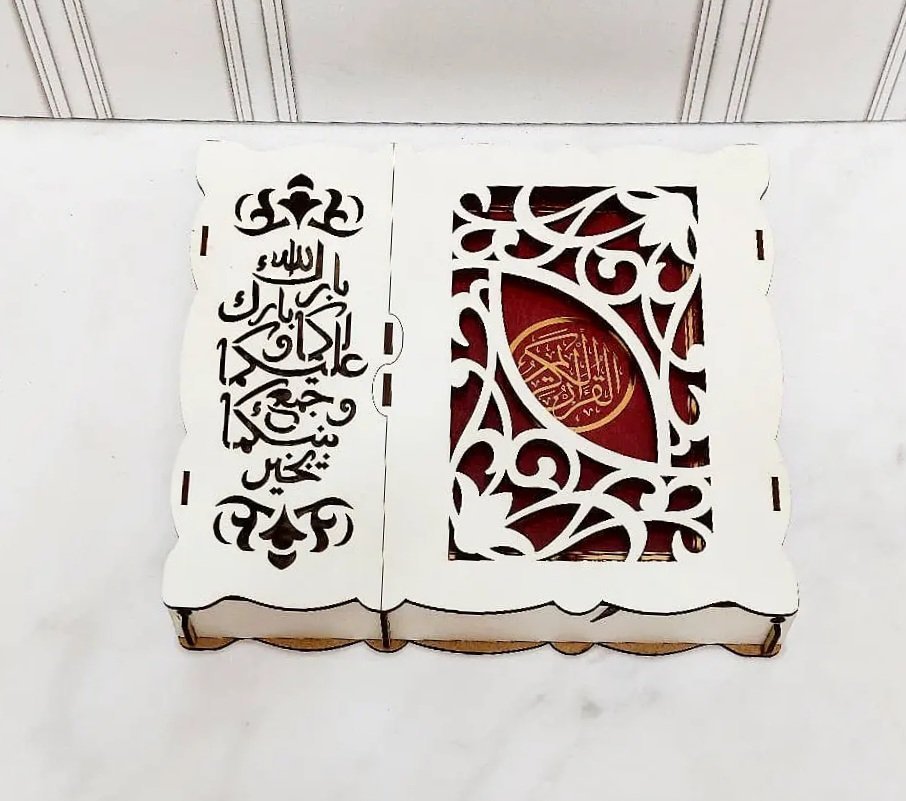 بارك الله
لكما وبارك
عليكما
وجمع
بينكما
بخير
القرآن الكريم